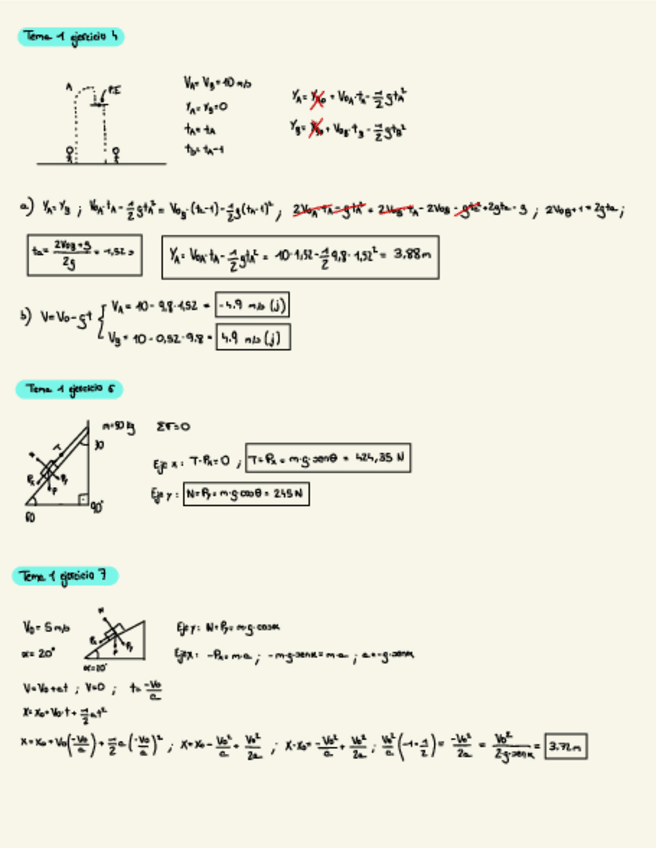 Tema 1 ejercicio 4
A P.E
V_A = V_B = 10 m/s
Y_A = Y_B = 0
t_A = t_A
t_B = t_A - 1
Y_A = Y_{A0} + V_{0A}·t_A - 1/2 g t_A²
Y_B = Y_{B0} + V_{0B}·t_B - 1/2 g t_B²
a) Y_A = Y_B ; V_{0A}·t_A - 1/2 g t_A² = V_{0B}·(t_A-1) - 1/2 g (t_A-1)² ; 2V_{0A}·t_A - g t_A² = 2V_{0B}·t_A - 2V_{0B} - g t_A² + 2g t_A - g ;
t_A = (2V_{0B} + g)/2g = 1,52 s
Y_A = V_{0A}·t_A - 1/2 g t_A² = 10·1,52 - 1/2 9,8·1,52² = 3,88 m
b) V = V_0 - gt
V_A = 10 - 9,8·1,52 = -4.9 m/s (j)
V_B = 10 - 0,52·9.8 = 4.9 m/s (j)
Tema 1 ejercicio 6
m = 50 kg
ΣF = 0
30
N T P_x P_y P
60 90°
Eje x: T - P_x = 0 ; T = P_x = m·g·senθ = 424,35 N
Eje y: N = P_y = m·g·cosθ = 245 N
Tema 1 ejercicio 7
V_0 = 5 m/s
α = 20°
N P_x P_y P
α = 20°
Eje y: N = P_y = m·g·cosα
Eje x: -P_x = m·a ; -m·g·senα = m·a ; a = -g·senα
V = V_0 + at ; V = 0 ; t = -V_0/a
X = X_0 + V_0·t + 1/2 a t²
X = X_0 + V_0(-V_0/a) + 1/2 a (-V_0/a)² ; X = X_0 - V_0²/a + V_0²/2a ; X - X_0 = -V_0²/a + V_0²/2a ; V_0²/a (-1 + 1/2) = -V_0²/2a = V_0²/2·g·senα = 3.72 m